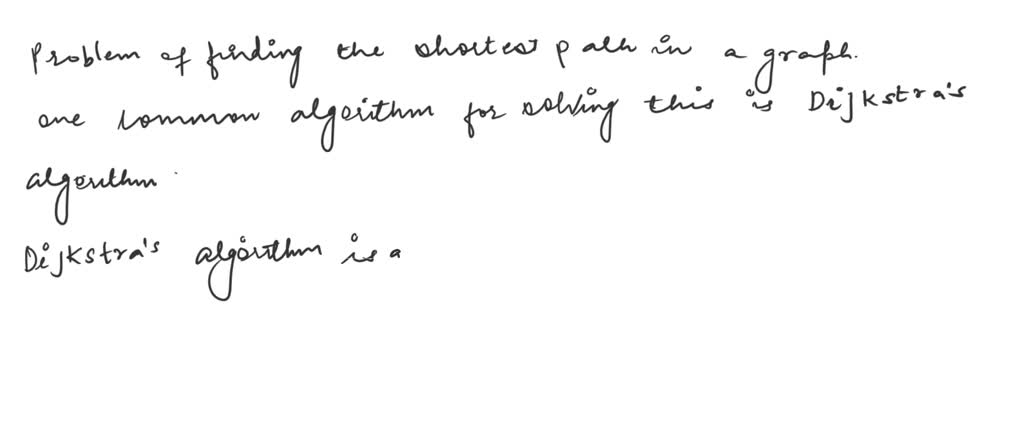 Problem of finding the shortest path in a graph.
one common algorithm for solving this is Dijkstra's
algorithm.
Dijkstra's algorithm is a